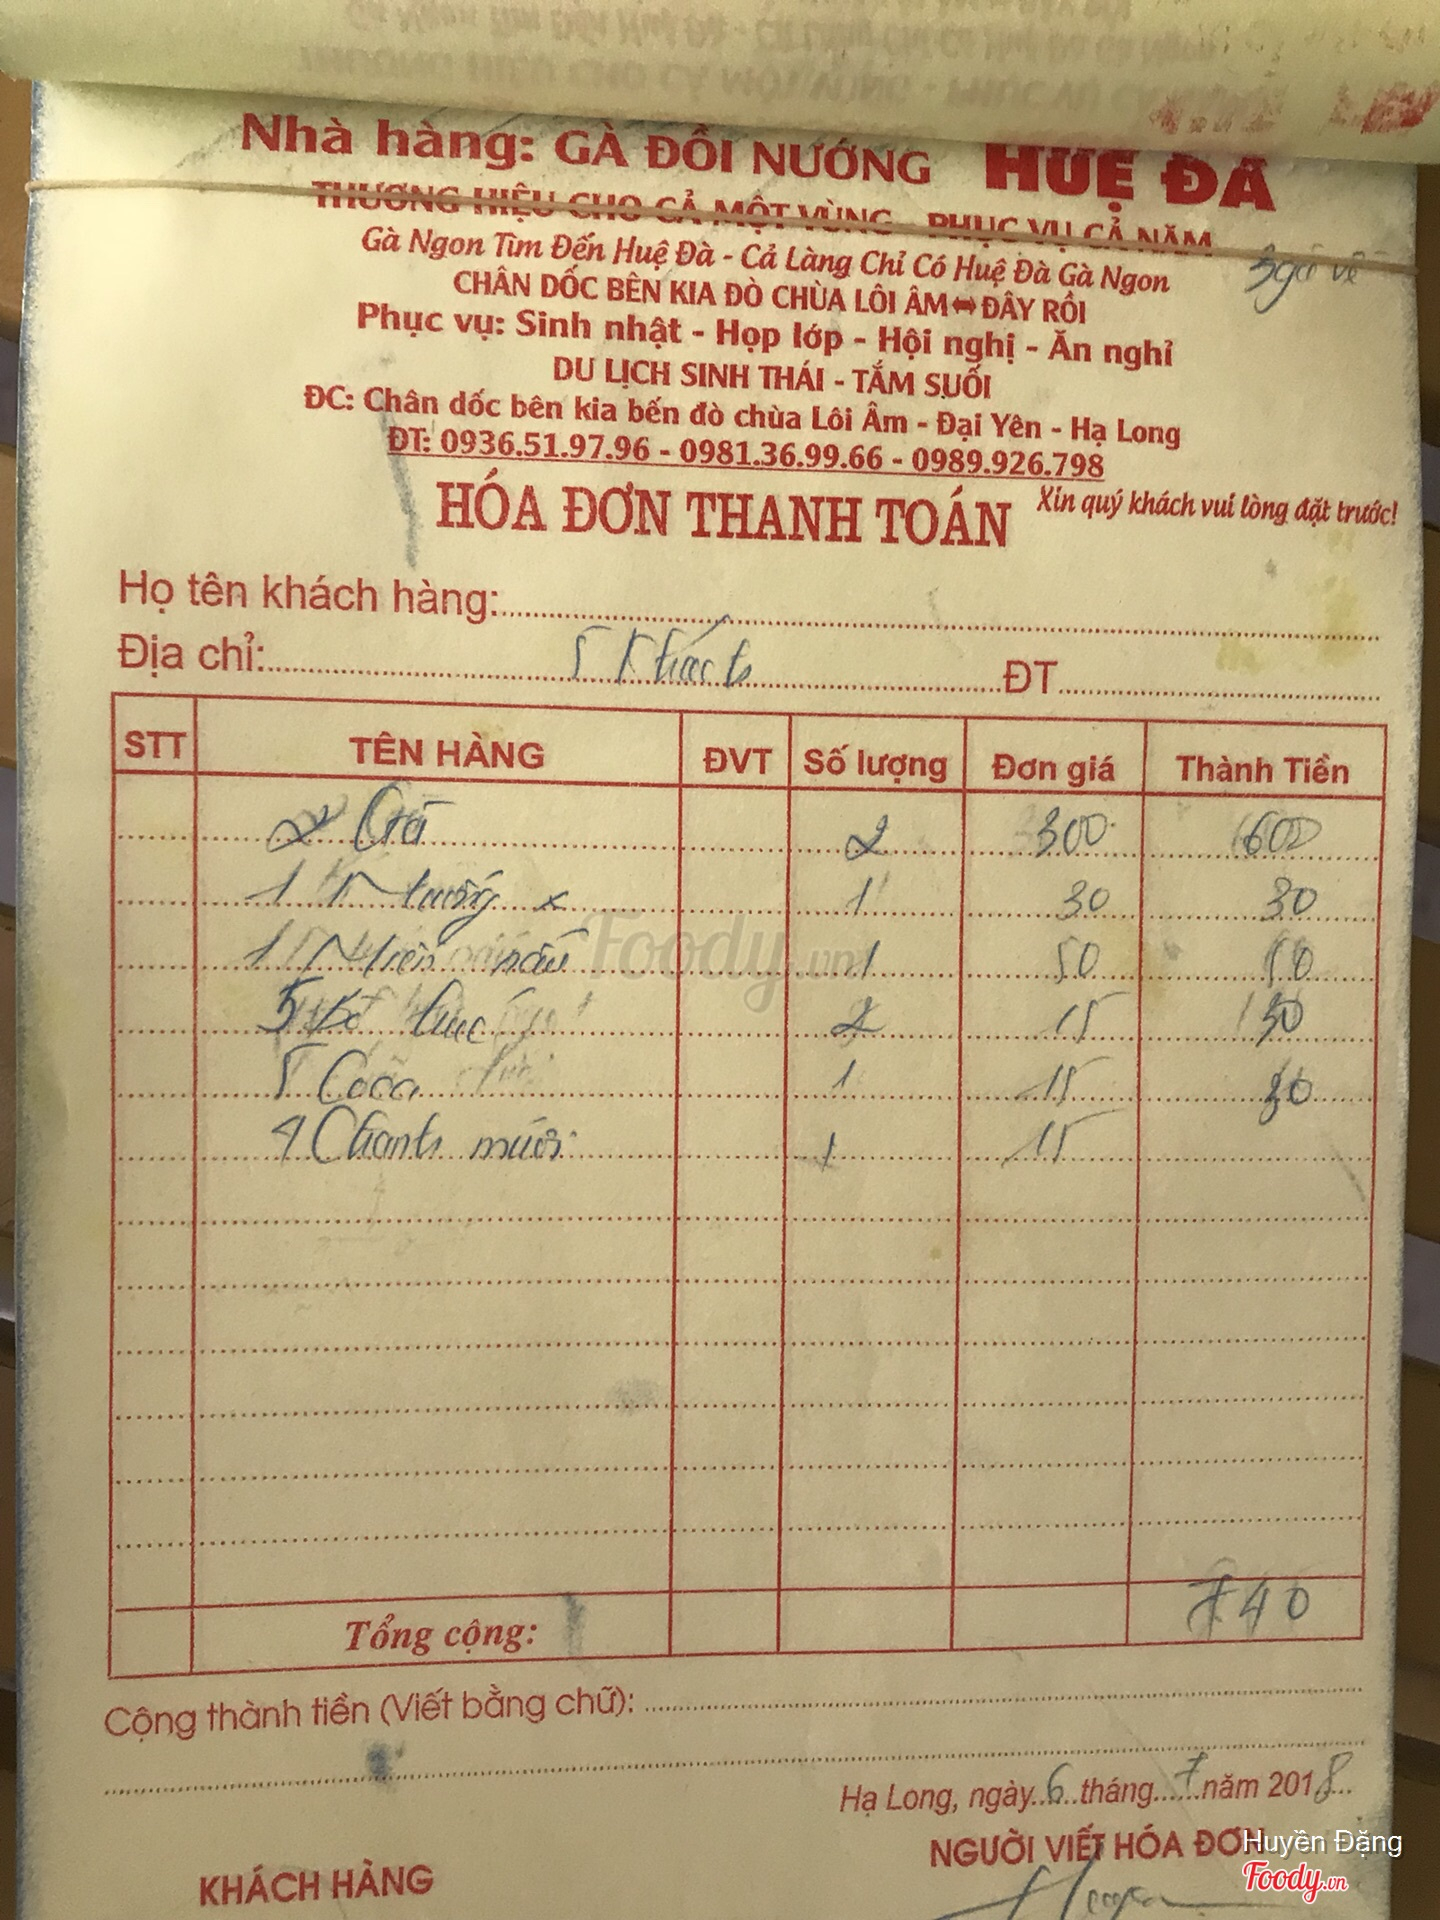 Nhà hàng: GÀ ĐỒI NƯỚNG HUỆ ĐÀ
THƯƠNG HIỆU CHO CẢ MỘT VÙNG - PHỤC VỤ CẢ NĂM
Gà Ngon Tìm Đến Huệ Đà - Cả Làng Chỉ Có Huệ Đà Gà Ngon
CHÂN DỐC BÊN KIA ĐÒ CHÙA LÔI ÂM ⇔ ĐÂY RỒI
Phục vụ: Sinh nhật - Họp lớp - Hội nghị - Ăn nghỉ
DU LỊCH SINH THÁI - TẮM SUỐI
ĐC: Chân dốc bên kia bến đò chùa Lôi Âm - Đại Yên - Hạ Long
ĐT: 0936.51.97.96 - 0981.36.99.66 - 0989.926.798
HÓA ĐƠN THANH TOÁN Xin quý khách vui lòng đặt trước!
Họ tên khách hàng:
Địa chỉ: 5 Khách ĐT
STT TÊN HÀNG ĐVT Số lượng Đơn giá Thành Tiền
2 Gà 2 300 600
1 1 30 30
1 1 50 50
2 15 30
Coca 1 15 30
Chanh muối 1 15
Tổng cộng: 740
Cộng thành tiền (Viết bằng chữ):
Hạ Long, ngày 6 tháng 7 năm 2018
NGƯỜI VIẾT HÓA ĐƠN
KHÁCH HÀNG
Foody.vn
Huyền Đặng
Foody.vn